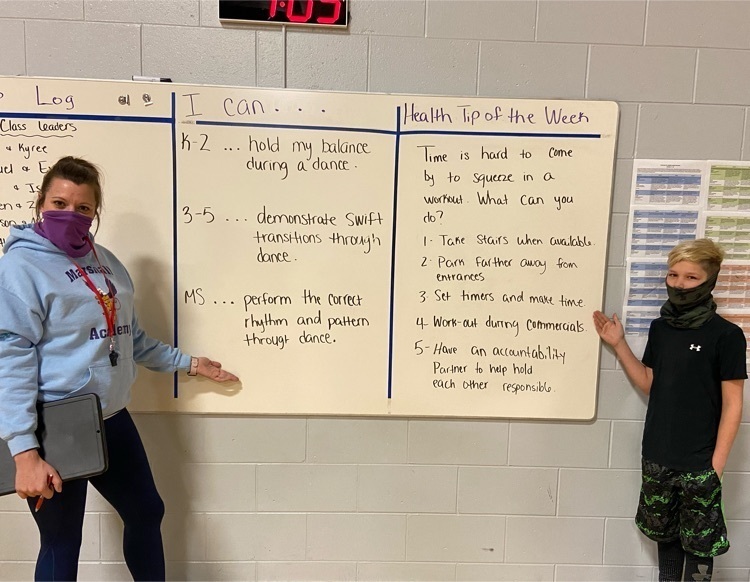 1:05
Log
Class Leaders
& Kyree
& Is
I can . . .
K-2 ... hold my balance
during a dance.
3-5 .... demonstrate swift
transitions through
dance.
MS ... perform the correct
rhythm and pattern
through dance.
Health Tip of the Week
Time is hard to come
by to squeeze in a
workout. What can you
do?
1- Take Stairs when available.
2- Park farther away from
entrances
3 Set timers and make time.
4- Work-out during Commercials.
5- Have an accountability
Partner to help hold
each other responsible.
Marshall
Academy